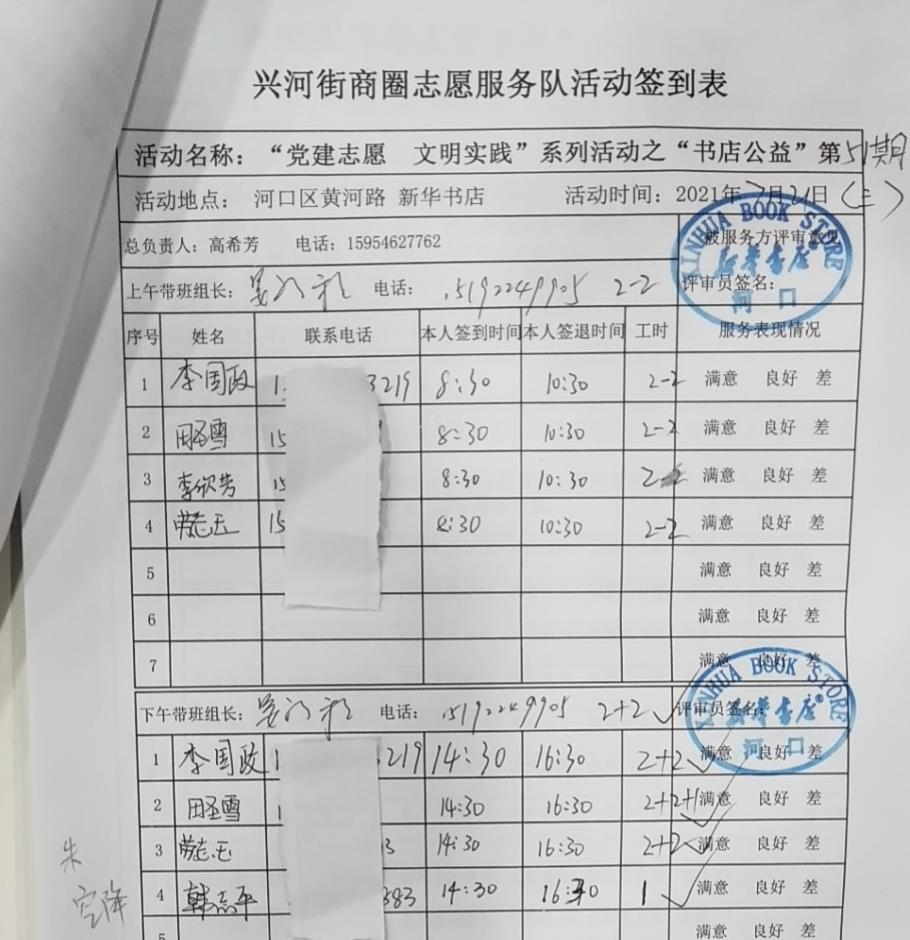 兴河街商圈志愿服务队活动签到表
活动名称：“党建志愿 文明实践”系列活动之“书店公益”第51期
活动地点： 河口区黄河路 新华书店 活动时间：2021年7月21日（三）
总负责人：高希芳 电话：15954627762 被服务方评审意见
XINHUA BOOK STORE
新华书店
河口
上午带班组长： 电话： 15192249905 2-2 评审员签名：
序号 姓名 联系电话 本人签到时间 本人签退时间 工时 服务表现情况
1 李国政 1 3219 8:30 10:30 2-2 满意 良好 差
2 田圣雪 15 8:30 10:30 2-2 满意 良好 差
3 李欣芳 15 8:30 10:30 2-2 满意 良好 差
4 劳志玉 15 8:30 10:30 2-2 满意 良好 差
5 满意 良好 差
6 满意 良好 差
7 满意 良好 差
XINHUA BOOK STORE
新华书店
河口
下午带班组长： 电话： 15192249905 2+2 评审员签名：
1 李国政 1 219 14:30 16:30 2+2 满意 良好 差
2 田圣雪 1 14:30 16:30 2+2+1 满意 良好 差
3 劳志玉 3 14:30 16:30 2+2 满意 良好 差
4 韩志平 383 14:30 16:30 1 满意 良好 差
5 满意 良好 差
朱